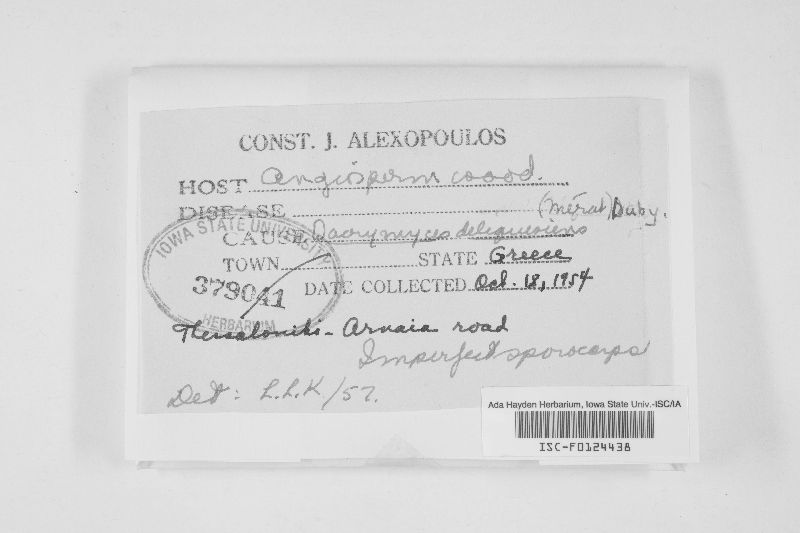 CONST. J. ALEXOPOULOS
HOST Angiosperm wood.
DISEASE (Mérat) Duby.
CAUSE Dacrymyces deliquescens
TOWN STATE Greece
DATE COLLECTED Oct. 18, 1954
IOWA STATE UNIVERSITY
379041
HERBARIUM
Thessaloniki - Arnaia road
Imperfect sporocarps
Det: L.L.K/57.
Ada Hayden Herbarium, Iowa State Univ.-ISC/IA
ISC-F0124438